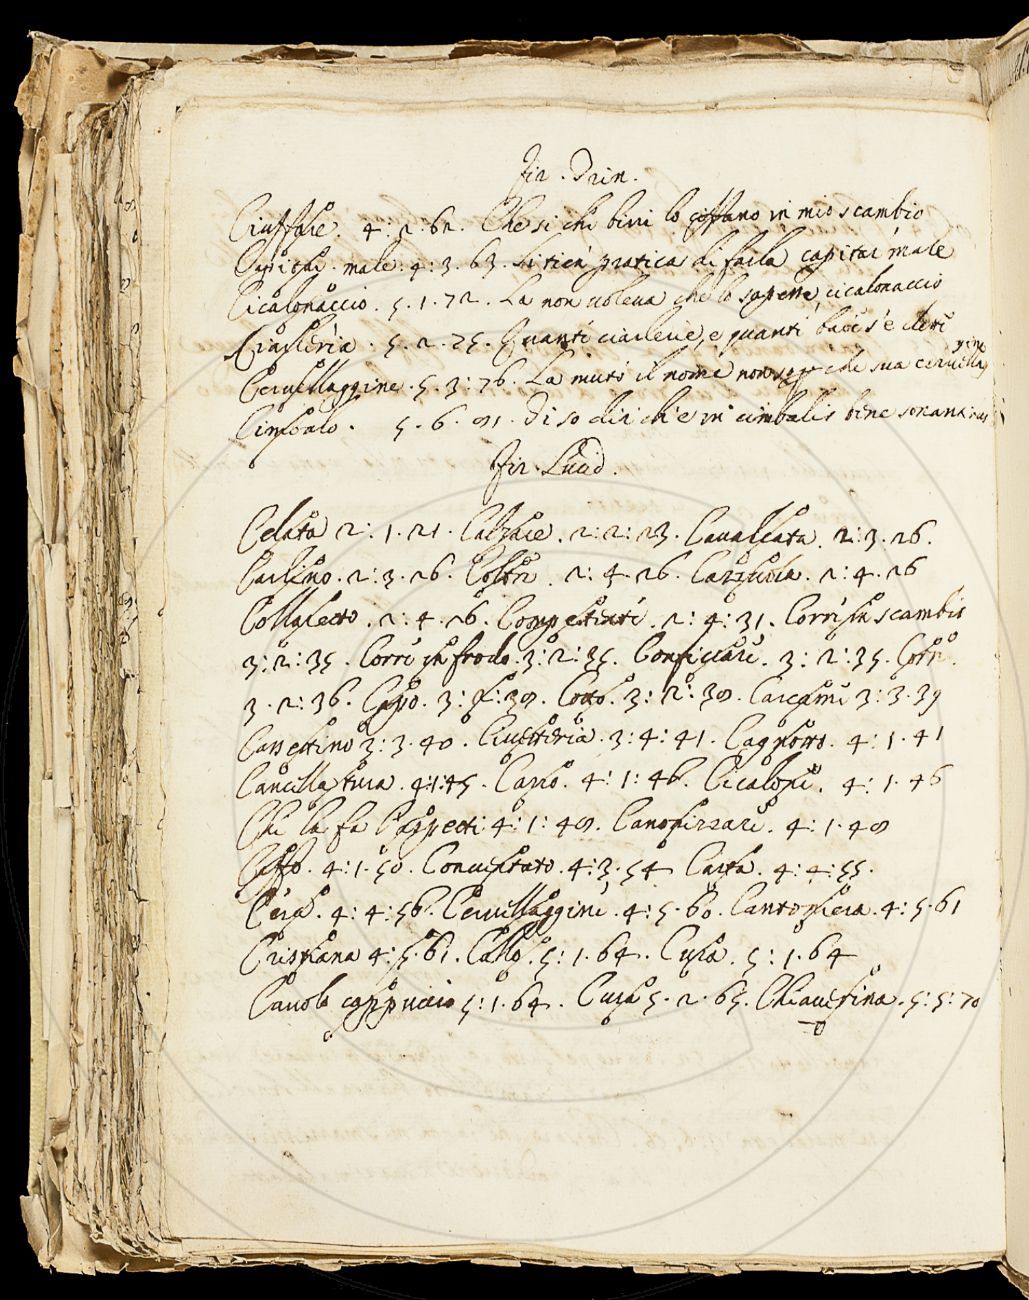 Fir. Trin.
Ciuffare. 4: 2: 62. Che si chi birri lo ciuffano in mio scambio
Capitar male. 4: 3. 63. capitar male
Cicalonaccio. 5. 1. 72. La non voleva che lo sapesse cicalonaccio
Ciarleria. 5. 2. 75. Quanti ciarlerie, e quanti baci s'è
Cervellaggine. 5. 3: 76. La mutò il nome non che sua cervellaggine
Cimbalo. 5. 6. 91. Di so dir ch'e in cimbalis bene sonan
Fir. Lucid.
Celata 2: 1. 21. Calzare. 2: 2: 23. Cavalcata. 2: 3. 26.
Carlino. 2: 3. 26. Coltre. 2: 4. 26. 2: 4. 26
Collaretto. 2: 4. 26. Competenti. 2: 4: 31. Corre in scambio
3: 2: 35. Corre in frodo. 3: 2: 35. Conficcare. 3: 2: 35.
3. 2: 36. Capo. 3: 38. Cotto. 3: 2: 38. Carcami 3: 3. 39
Cassettino 3: 3. 40. Civetteria. 3: 4: 41. Cagnotto. 4: 1. 41
Cancellatura. 4: 1: 45. Carso. 4: 1: 46. 4: 1. 46
Chi la fa l'aspetti 4: 1: 48. Canonizzare. 4: 1. 48
Ceffo. 4: 1. 50. 4: 3. 54 Carta. 4: 4: 55.
Cera. 4: 4: 56. Cervellaggine. 4: 5. 60. Cantoniera. 4: 5. 61
Cristiana 4: 5. 61. Callo. 5: 1. 64. Cura. 5: 1. 64
Cavolo cappuccio 5: 1. 64. 5. 2. 65. Chiavesina. 5: 5: 70